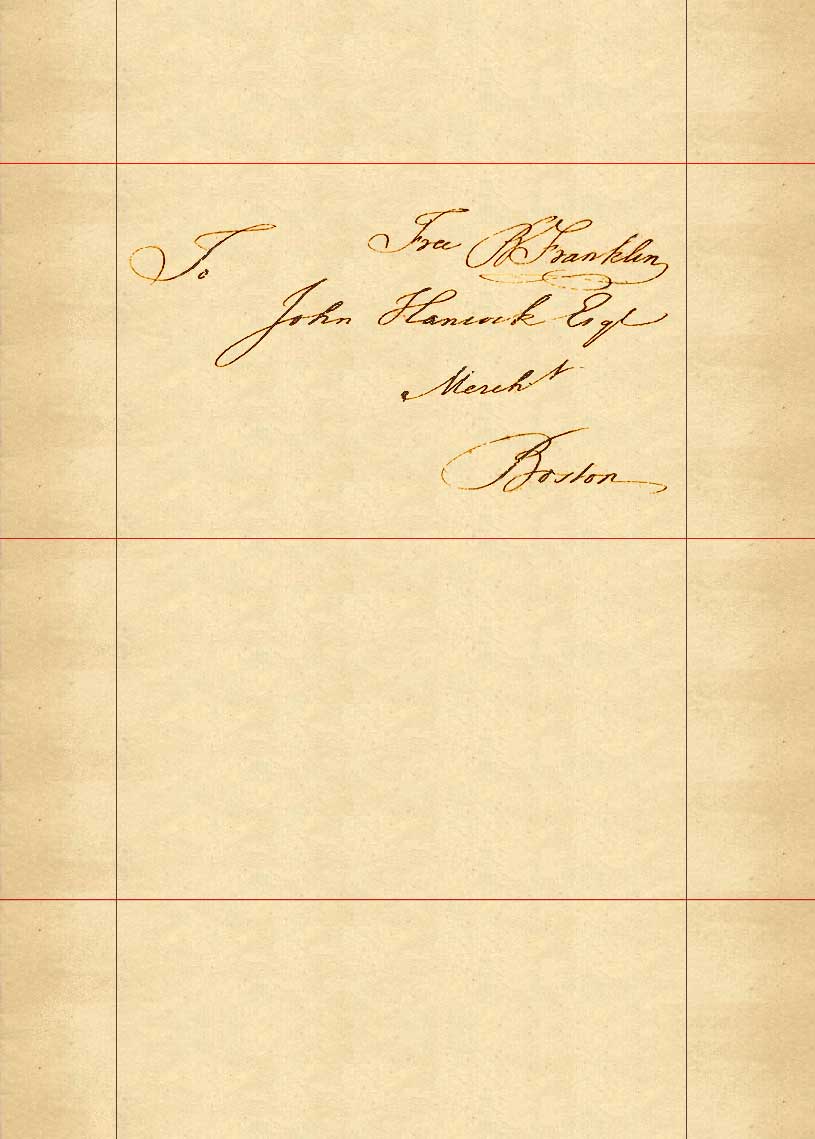 Free B Franklin
To
John Hancock Esqr
Mercht
Boston